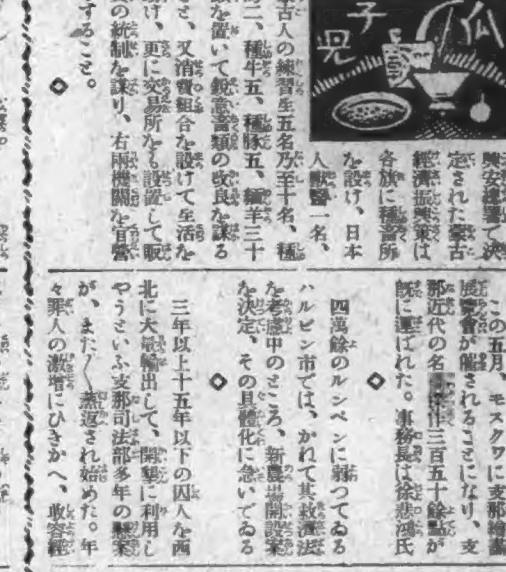 瓜子兒
興安總署で決
定された蒙古
經濟振興策は
各旗に種畜所
を設け、日本
人獸醫一名、
蒙古人の練習生五名乃至十名、種
二、種牛五、種豚五、緬羊三十
を置いて鋭意畜類の改良を謀る
さ、又消費組合を設けて生活を
け、更に交易所をも設置して販
の統制を謀り、右兩機關を官營
すること。
◇
この五月、モスクワに支那繪畫
展覽會が催されることになり、支
那近代の名 三百五十餘點が
既に運ばれた。事務長は徐悲鴻氏
◇
四萬餘のルンペンに弱つてゐる
ハルビン市では、かねて其救濟法
を考慮中のところ、新農場開設案
を決定、その具體化に急いでゐる
◇
三年以上十五年以下の囚人を西
北に大量輸出して、開墾に利用し
やうといふ支那司法部多年の懸案
が、また〱蒸返され始めた。年
々罪人の激増にひきかへ、收容經